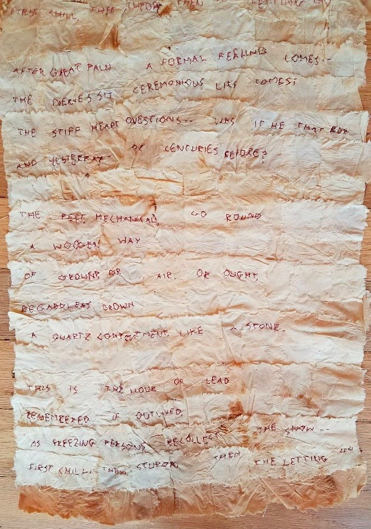 FIRST CHILL THEN STUPOR THEN THE LETTING
AFTER GREAT PAIN A FORMAL FEELING COMES--
THE NERVES SIT CEREMONIOUS LIKE TOMBS;
THE STIFF HEART QUESTIONS-- WAS IT HE THAT BORE
AND YESTERDAY OR CENTURIES BEFORE?
THE FEET MECHANICAL GO ROUND
A WOODEN WAY
OF GROUND OR AIR, OR OUGHT,
REGARDLESS GROWN
A QUARTZ CONTENTMENT LIKE A STONE.
THIS IS THE HOUR OF LEAD
REMEMBERED IF OUTLIVED
AS FREEZING PERSONS RECOLLECT THE SNOW--
FIRST CHILL, THEN STUPOR, THEN THE LETTING